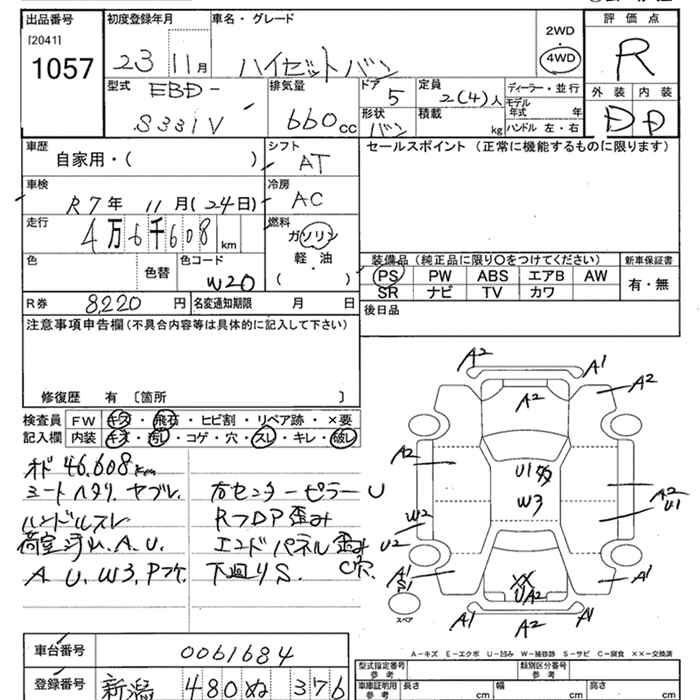 出品番号 初度登録年月 車名・グレード 2WD 評価点
[2041] 1057 23 11月 ハイゼットバン ・ 4WD R
型式 EBD- 排気量 ドア 5 定員 2(4)人 ディーラー・並行 外装 内装
S331V 660cc 形状 バン 積載 kg モデル年式 年 ハンドル 左・右 D D
車歴 シフト セールスポイント (正常に機能するものに限ります)
自家用・( ) AT
車検 冷房
R7年 11月(24日) AC
走行 燃料
4万6千608km ガソリン
軽・油
色 色替 色コード W20 ・ ( )
装備品(純正品に限り○をつけてください) 新車保証書
PS PW ABS エアB AW 有・無
SR ナビ TV カワ
R券 8,220円 名変通知期限 月 日 後日品
注意事項申告欄(不具合内容等は具体的に記入して下さい)
修復歴 有 〔箇所 〕
検査員 FW キズ・飛石・ヒビ割・リペア跡・×要
記入欄 内装 キズ・汚し・コゲ・穴・スレ・キレ・破レ
オド 46,608km
シートヘタリ、ヤブレ、 右センターピラーU
ハンドルスレ Rフロア歪み
荷室汚れ、A、U、 エンドパネル歪み
A、U、W3、Pヌケ、 下廻りS、C有、
A2 A1
A2 A2
A2 U1 W3 A2 U1
W2 U2
A1 S1 ×× UA2 A1
スペア A1 A2 A1
A-キズ E-エクボ U-凹み W-補修跡 S-サビ C-腐食 ××-交換済
車台番号 0061684
型式指定番号 参考 類別区分番号 参考
登録番号 新潟 480 ぬ 376
車庫証明用 参考 長さ cm 幅 cm 高さ cm